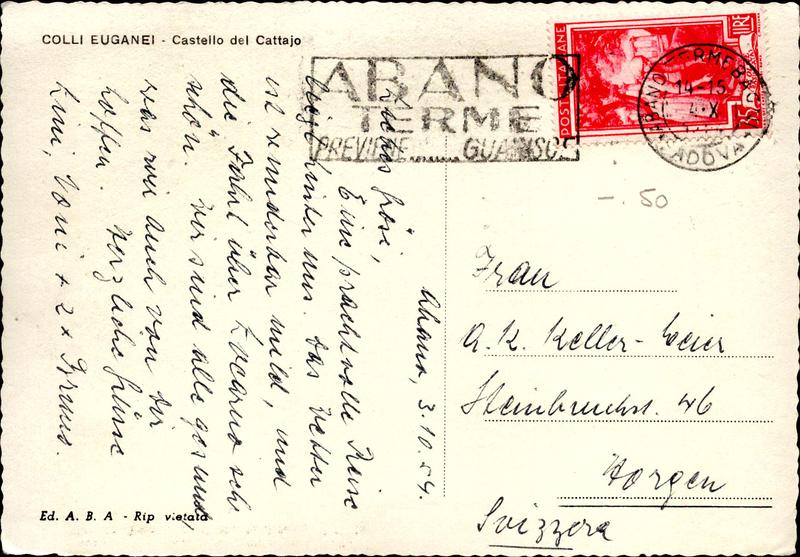 COLLI EUGANEI - Castello del Cattajo
ABANO
TERME
PREVIENE GUARISCE
POSTE ITALIANE
LIRE
35
ABANO TERME
14-15
PADOVA
-. 50
Abano, 3.10.54.
Liebes Rösi,
Eine prachtvolle Reise
liegt hinter uns. Das Wetter
ist wunderbar mild, und
die Fahrt über Locarno sehr
schön. Wir sind alle gesund,
was wir auch von Dir
hoffen. Herzliche Grüsse
Toni + 2 x
Frau
A. K. Keller-Meier
Steinbruchst. 46
Horgen
Svizzera
Ed. A. B. A - Rip vietata